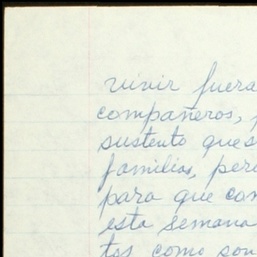 vivir fuera
compañeros,
sustento que s
familias, per
para que con
esta semana
tes como son